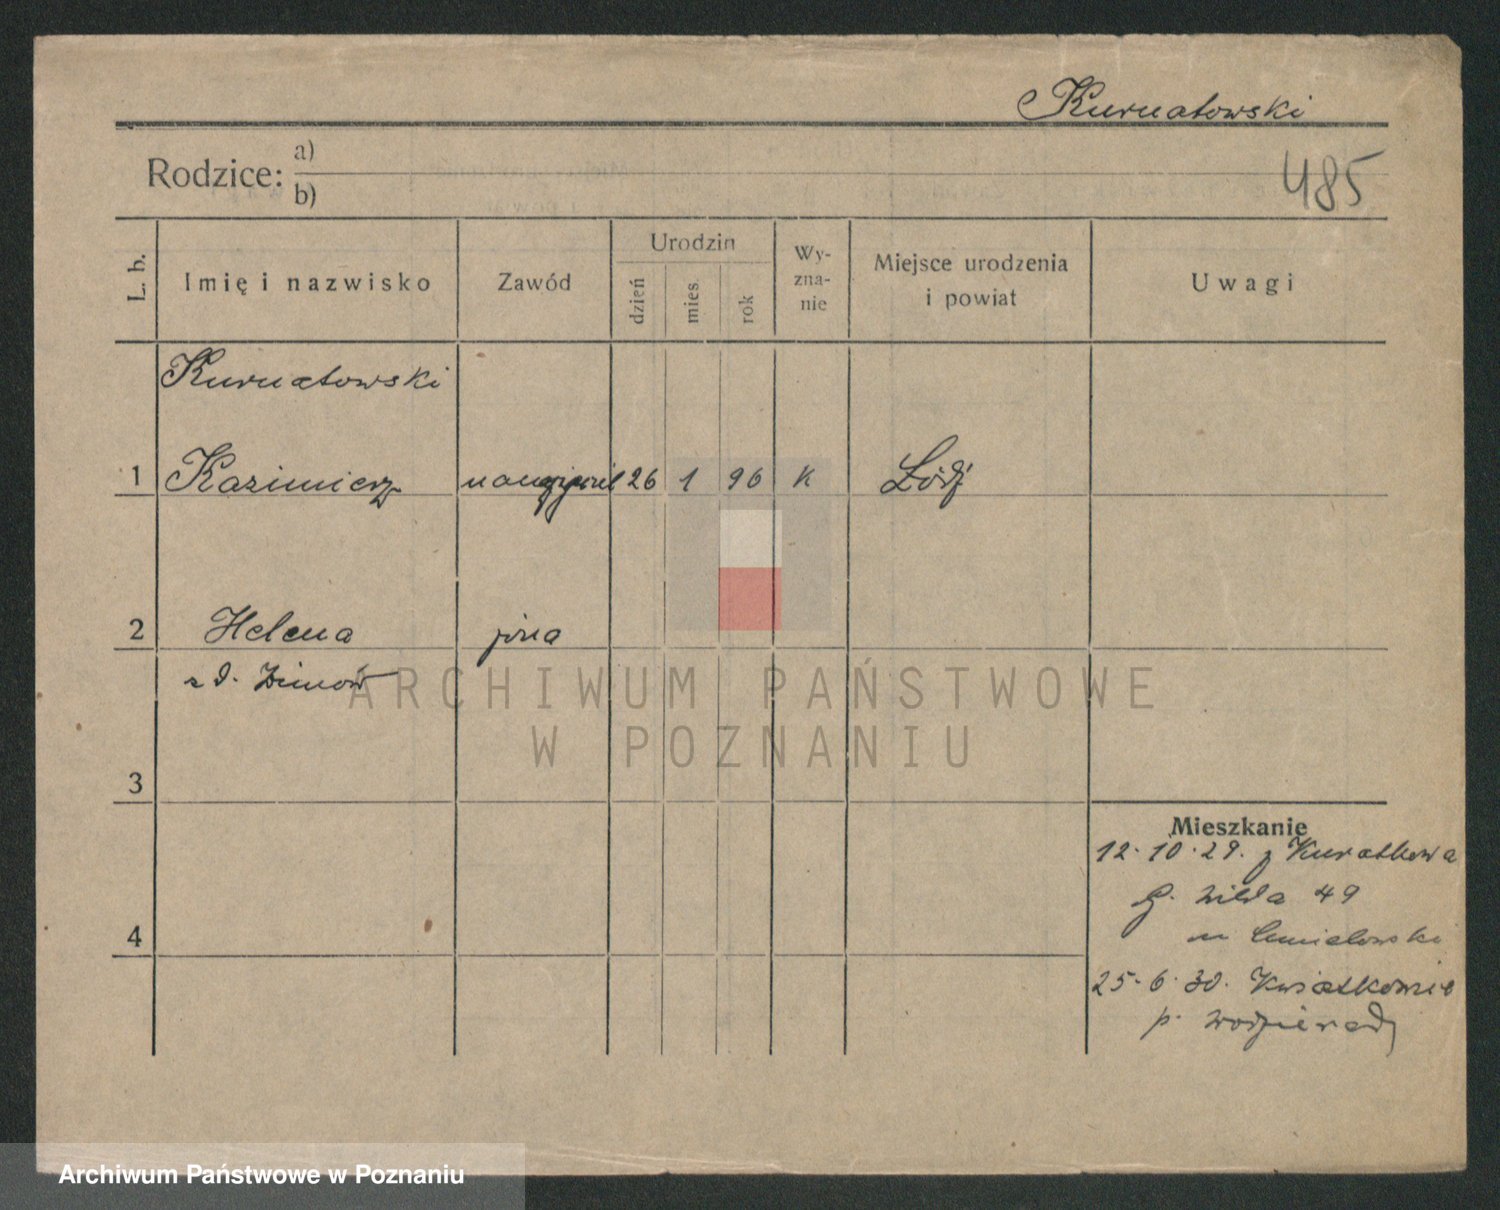 Kurnatowski
Rodzice: a)
b)
485
L. b.
Imię i nazwisko
Zawód
Urodzin
dzień
mies.
rok
Wy-
zna-
nie
Miejsce urodzenia
i powiat
Uwagi
Kurnatowski
1 Kazimierz nauczyciel 26 1 96 K Łódź
2 Helena żona
z d. Zimów
3
Mieszkanie
12.10.29. z
G. Wilda 49
4
25.6.30.
p.
ARCHIWUM PAŃSTWOWE
W POZNANIU
Archiwum Państwowe w Poznaniu